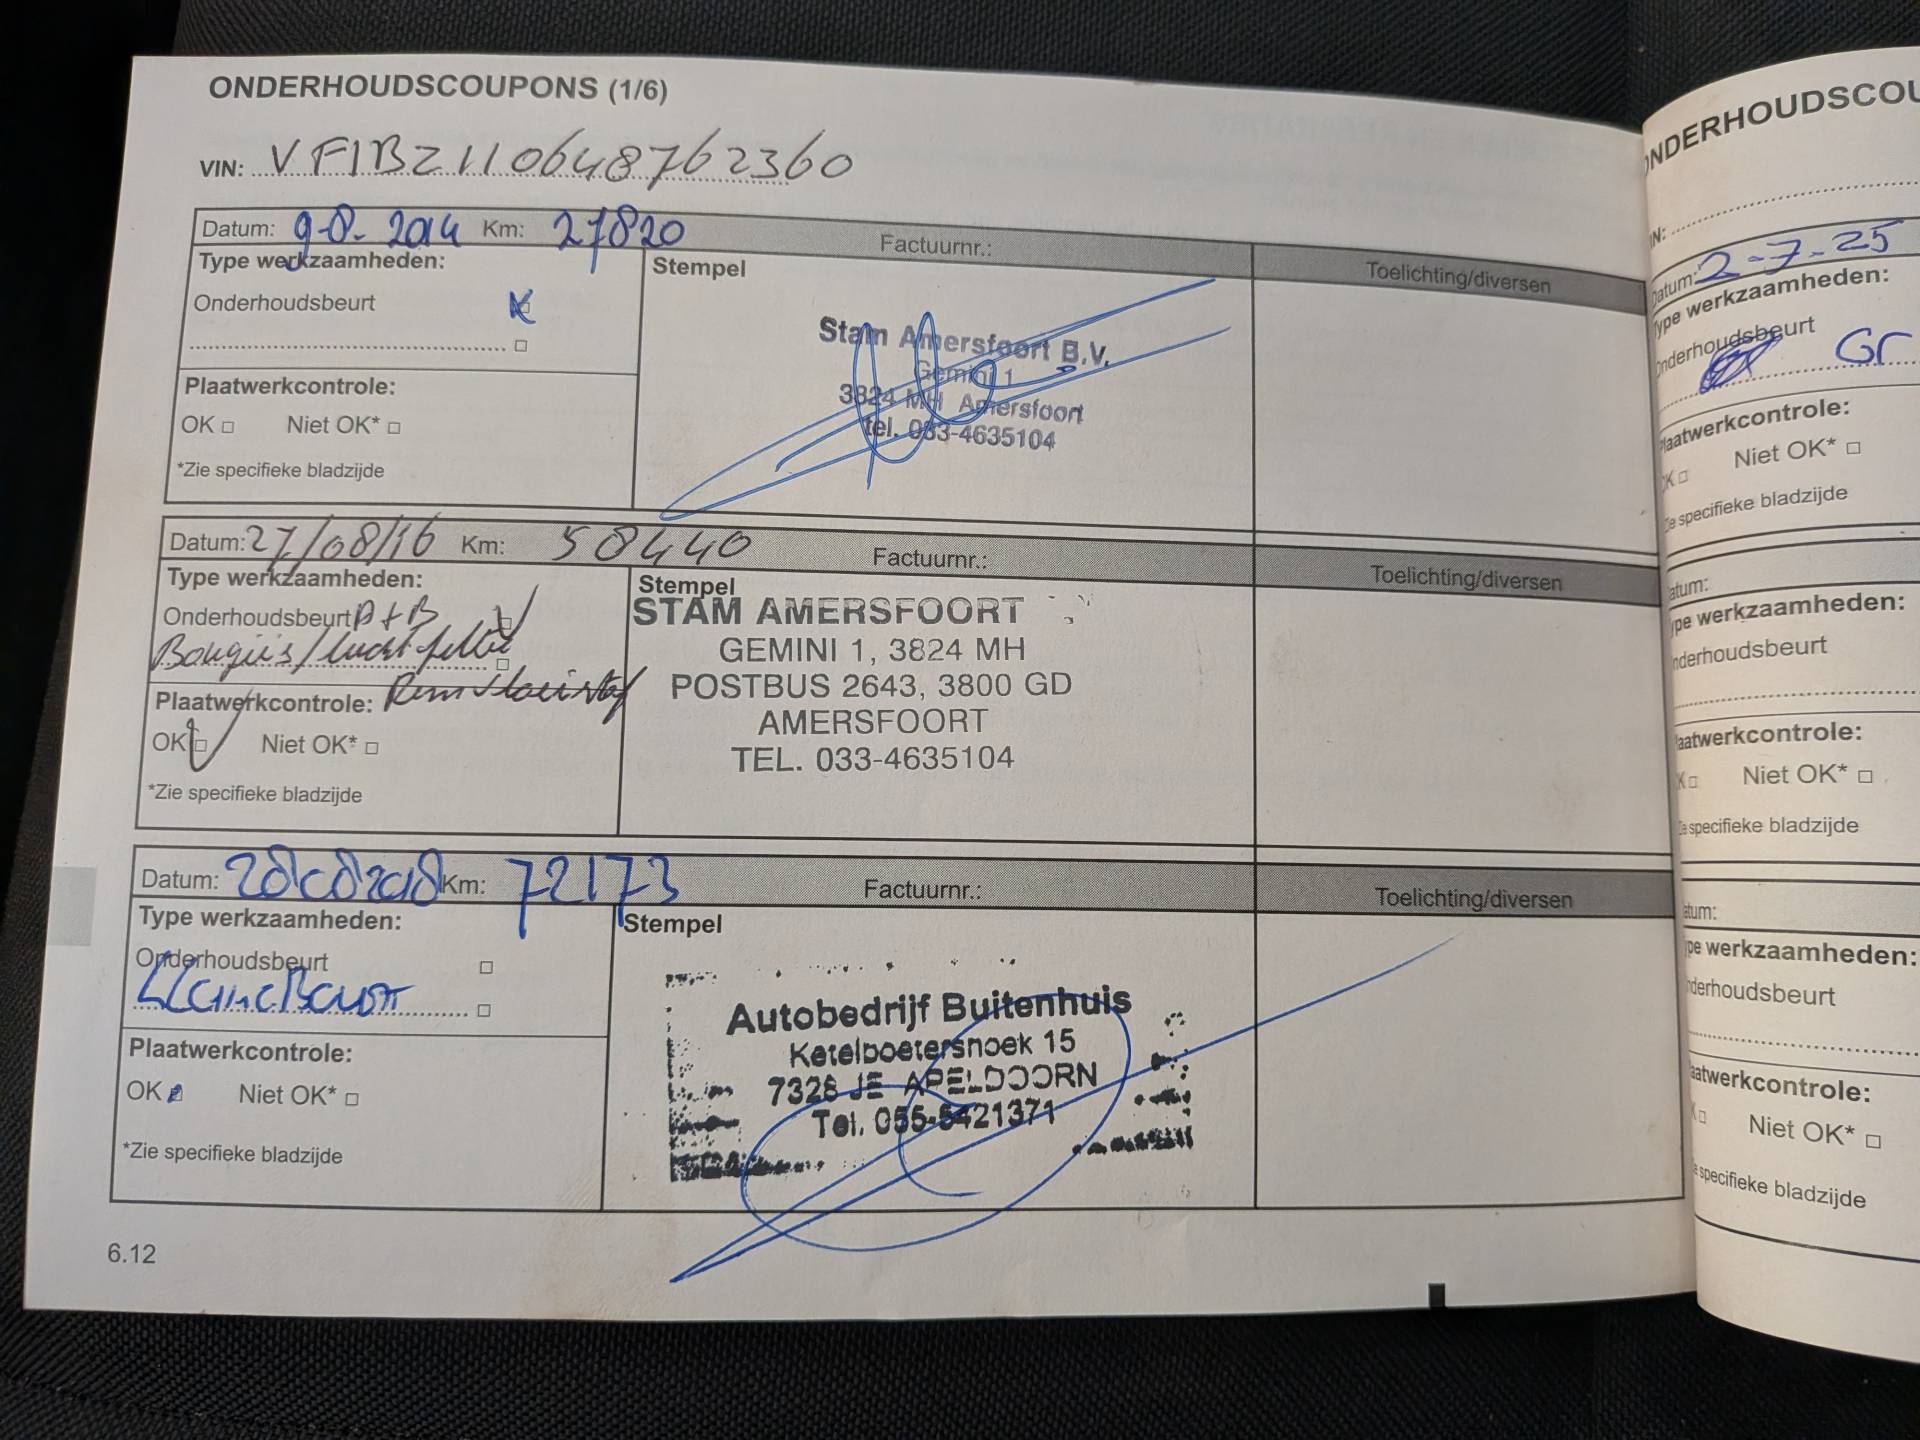 ONDERHOUDSCOUPONS (1/6)
VIN: VF1BZ110648762360
Datum: 9-8-2014 Km: 27820 Factuurnr.: Toelichting/diversen
Type werkzaamheden:
Stempel
Onderhoudsbeurt
Plaatwerkcontrole:
OK Niet OK*
*Zie specifieke bladzijde
Stam Amersfoort B.V.
Gemini 1
3824 MH Amersfoort
tel. 033-4635104
Datum: 27/08/16 Km: 58440 Factuurnr.: Toelichting/diversen
Type werkzaamheden:
Stempel
Onderhoudsbeurt A+B
Bougies/luchtfilter
Plaatwerkcontrole: Remvloeistof
OK Niet OK*
*Zie specifieke bladzijde
STAM AMERSFOORT
GEMINI 1, 3824 MH
POSTBUS 2643, 3800 GD
AMERSFOORT
TEL. 033-4635104
Datum: 28082018 Km: 72173 Factuurnr.: Toelichting/diversen
Type werkzaamheden:
Stempel
Onderhoudsbeurt
Plaatwerkcontrole:
OK Niet OK*
*Zie specifieke bladzijde
Autobedrijf Buitenhuis
Ketelboetershoek 15
7328 JE APELDOORN
Tel. 055-5421371
6.12
ONDERHOUDSCOU
IN:
Datum: 2-7-25
Type werkzaamheden:
Onderhoudsbeurt
Gr
Plaatwerkcontrole:
OK Niet OK*
Zie specifieke bladzijde
atum:
ype werkzaamheden:
nderhoudsbeurt
laatwerkcontrole:
K Niet OK*
ie specifieke bladzijde
atum:
ype werkzaamheden:
nderhoudsbeurt
aatwerkcontrole:
K Niet OK*
e specifieke bladzijde